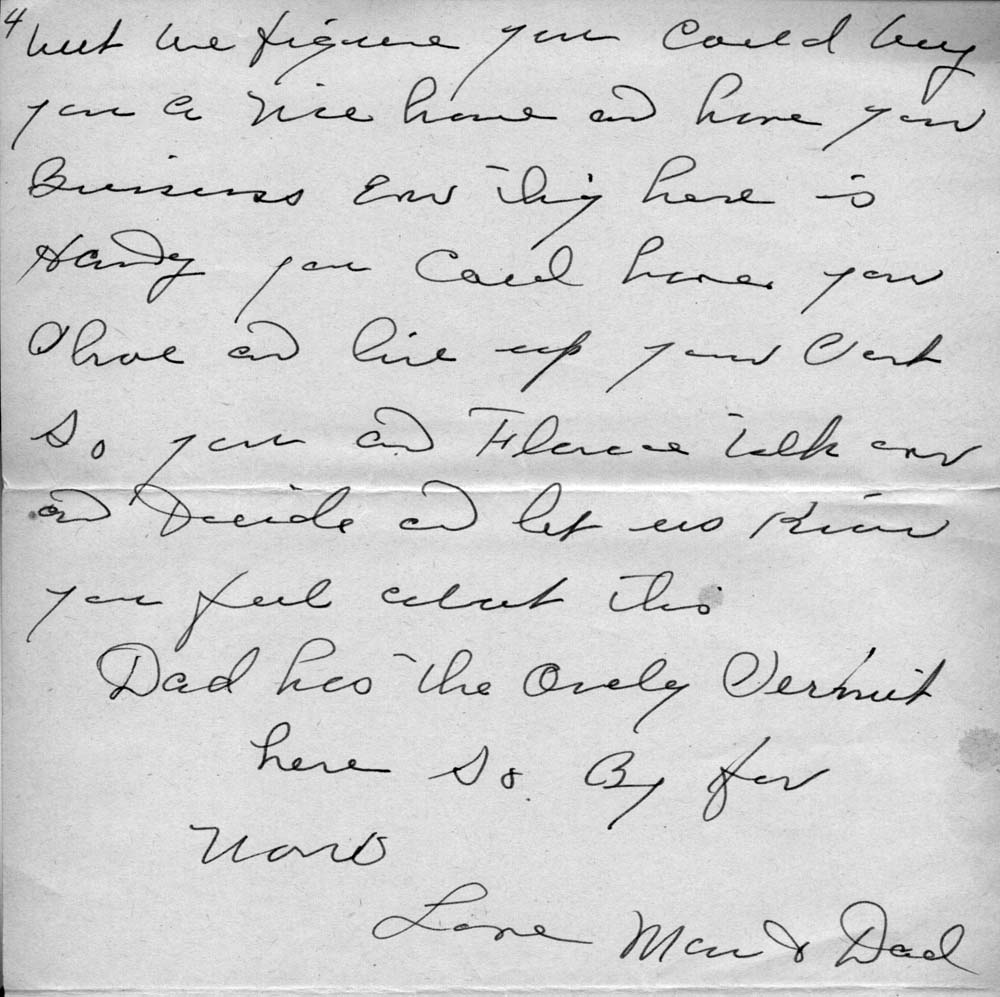 4
but we figure you could buy
you a nice home and have your
Business Ever thing here is
Handy you Could have your
Phoe and live up your Cort
So you and Florace talk over
and Decide and let us know
you feel about this
Dad has the Onely Permit
here So By for
Now
Love Mom & Dad